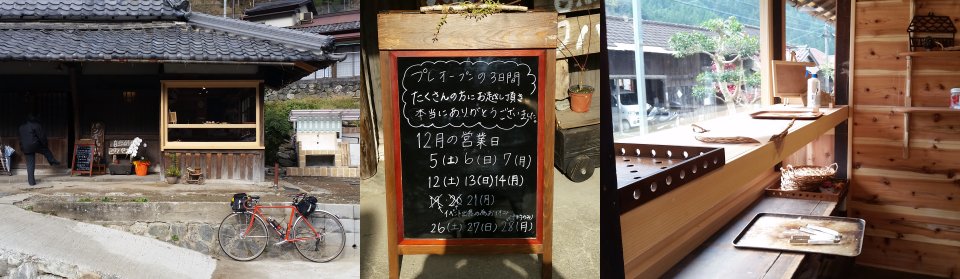 プレオープンの3日間
たくさんの方にお越し頂き
本当にありがとうございました。
12月の営業日
5(土) 6(日) 7(月)
12(土) 13(日) 14(月)
19 20 21(月)
26(土) 27(日) 28(月)